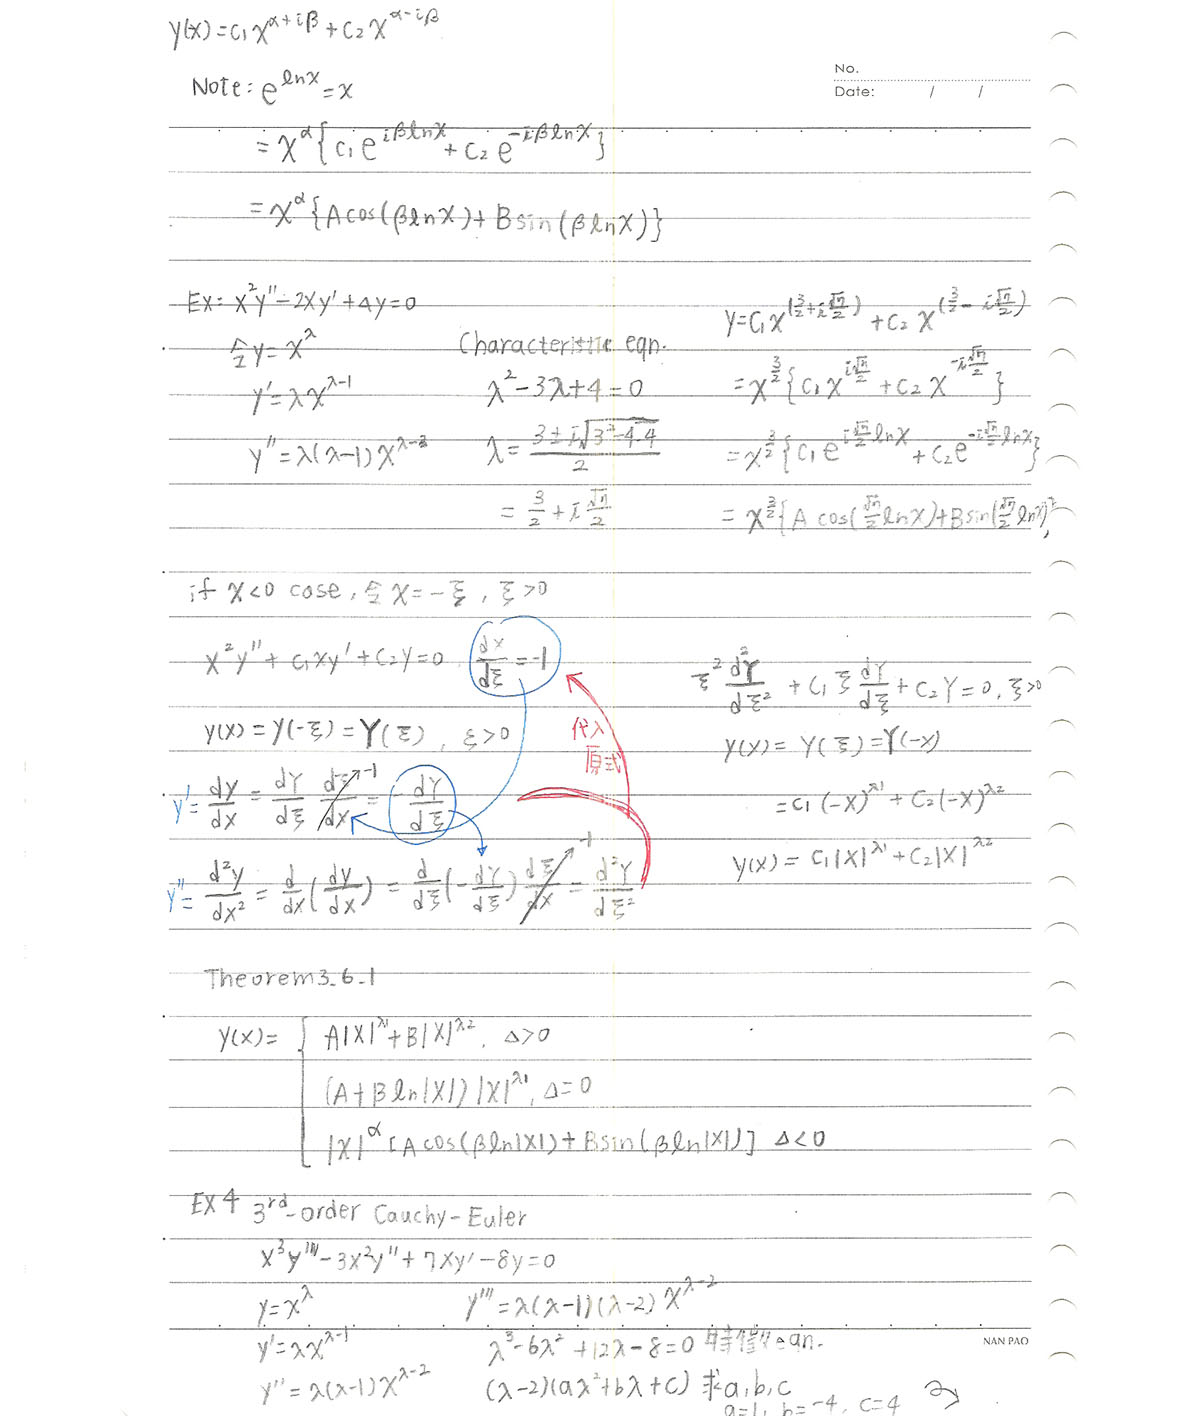 y(x)=c₁x^(α+iβ)+c₂x^(α-iβ)
No.
Date: / /
Note: e^(lnx)=x
=x^α{c₁e^(iβlnx)+c₂e^(-iβlnx)}
=x^α{Acos(βlnx)+Bsin(βlnx)}
Ex: x²y''-2xy'+4y=0
令y=x^λ
y'=λx^(λ-1)
y''=λ(λ-1)x^(λ-2)
Characteristic eqn.
λ²-3λ+4=0
λ=(3±i√(3²-4·4))/2
=3/2+i√7/2
y=c₁x^(3/2+i√7/2)+c₂x^(3/2-i√7/2)
=x^(3/2){c₁x^(i√7/2)+c₂x^(-i√7/2)}
=x^(3/2){c₁e^(i√7/2 lnx)+c₂e^(-i√7/2 lnx)}
=x^(3/2){A cos(√7/2 lnx)+Bsin(√7/2 lnx)}
if x<0 case, 令x=-ξ, ξ>0
x²y''+c₁xy'+c₂y=0 dx/dξ=-1
y(x)=y(-ξ)=Y(ξ), ξ>0
代入
原式
y'=dy/dx=dY/dξ dξ/dx -1 =-dY/dξ
y''=d²y/dx²=d/dx(dy/dx)=d/dξ(-dY/dξ)dξ/dx -1 =d²Y/dξ²
ξ²d²Y/dξ²+c₁ξdY/dξ+c₂Y=0, ξ>0
y(x)=Y(ξ)=Y(-x)
=c₁(-x)^λ1+c₂(-x)^λ2
y(x)=c₁|x|^λ1+c₂|x|^λ2
Theorem 3.6.1
y(x)={A|x|^λ1+B|x|^λ2, Δ>0
(A+Bln|x|)|x|^λ1, Δ=0
|x|^α[Acos(βln|x|)+Bsin(βln|x|)] Δ<0
EX 4 3rd-order Cauchy-Euler
x³y'''-3x²y''+7xy'-8y=0
y=x^λ y'''=λ(λ-1)(λ-2)x^(λ-2)
y'=λx^(λ-1) λ³-6λ²+12λ-8=0 特徵eqn.
NAN PAO
y''=λ(λ-1)x^(λ-2) (λ-2)(aλ²+bλ+c) 求a,b,c
a=1, b=-4, c=4